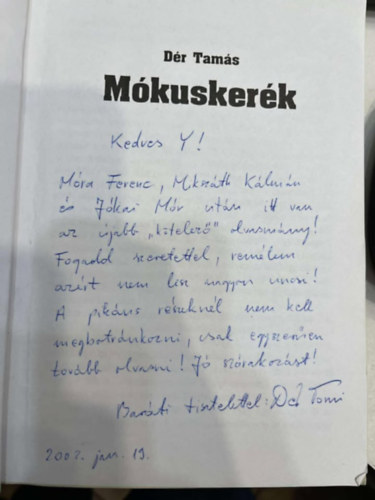 Dér Tamás
Mókuskerék
Kedves Y!
Móra Ferenc, Mikszáth Kálmán
és Jókai Mór után itt van
az újabb „kötelező" olvasmány!
Fogadd szeretettel, remélem
azért nem lesz nagyon unesi!
A pikáns részeknél nem kell
megbotránkozni, csak egyszerűen
tovább olvasni! Jó szórakozást!
Baráti tisztelettel: Dér Tomi
2002. jan. 19.